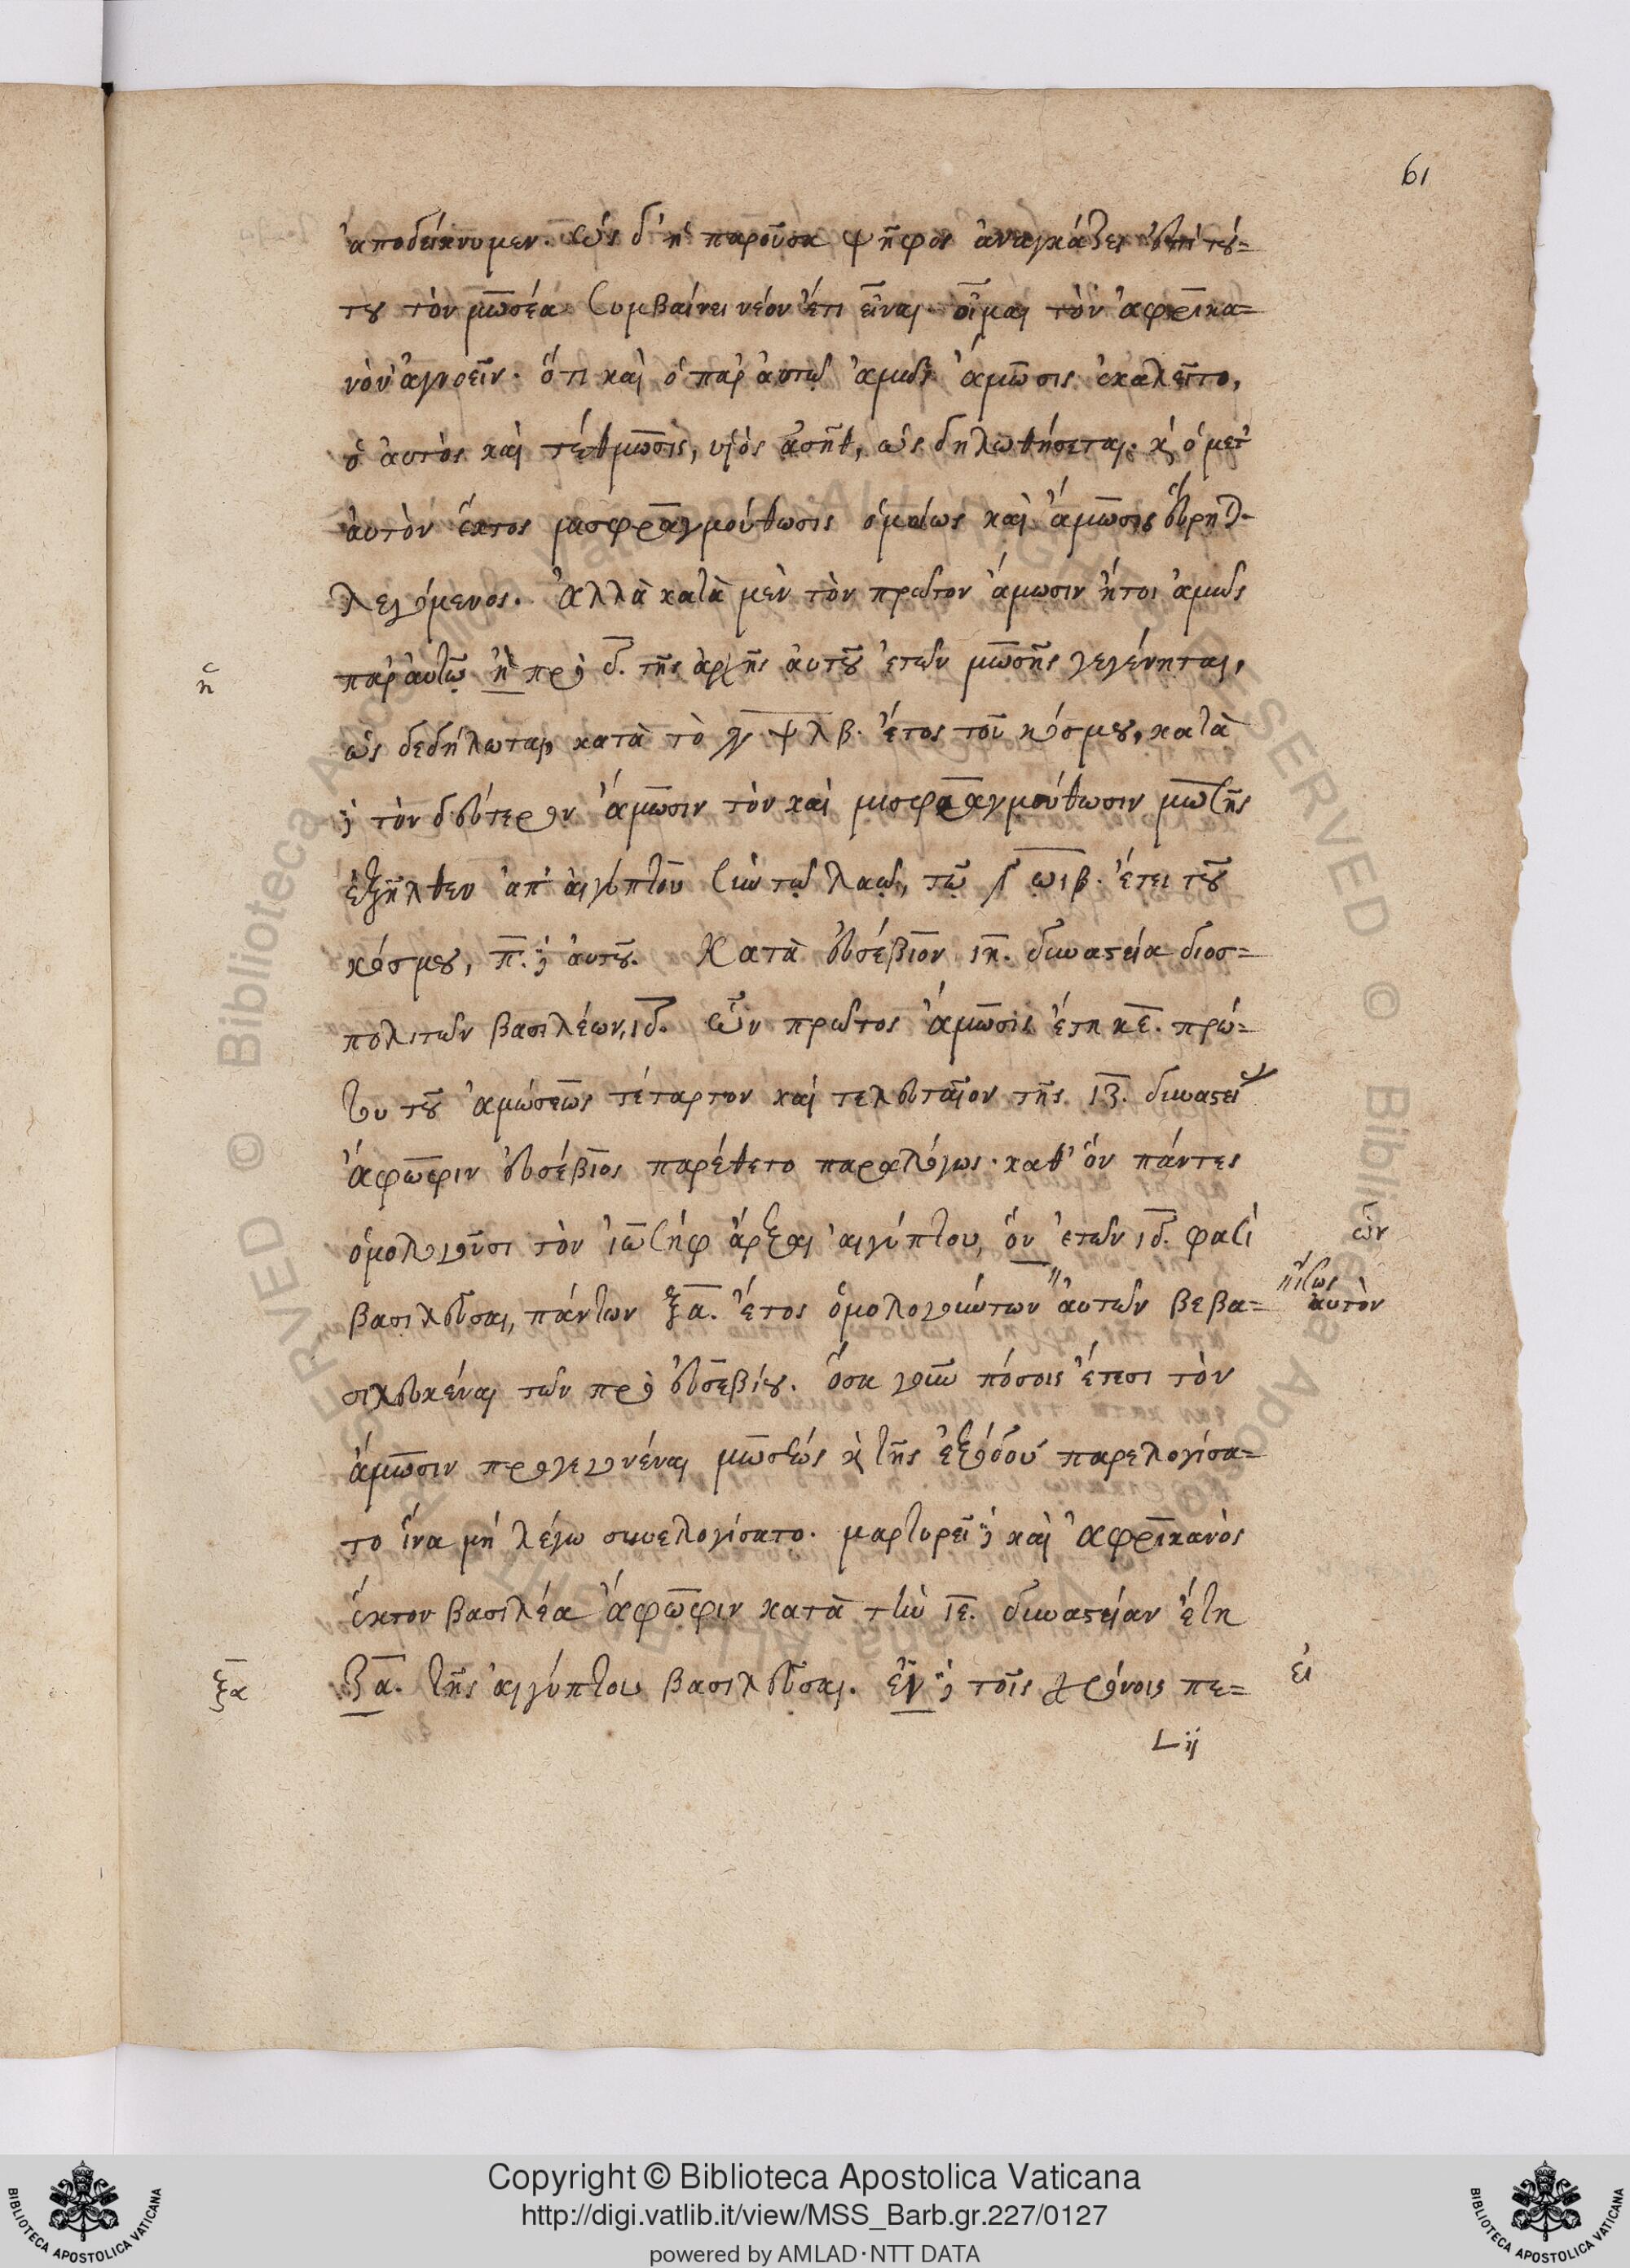 61
ἀποδείκνυμεν. ὡς δ' ἡ παροῦσα ψῆφος ἀναγκάζει ἐπὶ τού=
του τὸν μωσέα συμβαίνει νέον ἔτι εἶναι. οἶμαι τὸν ἀφρικα=
νὸν ἀγνοεῖν. ὅτι καὶ ὁ παρ' αὐτῷ ἀμὼς ἄμωσις ἐκαλεῖτο,
ὁ αὐτὸς καὶ τέθμωσις, υἱὸς ἀσὴθ, ὡς δηλωθήσεται. κ ὁ μετ'
αὐτὸν ἕκτος μισφραγμούθωσις ὁμοίως καὶ ἄμωσις
λεγόμενος. ἀλλὰ κατὰ μὲν τὸν πρῶτον ἄμωσιν ἤτοι ἀμὼς
ῆ
παρ' αὐτῷ ἢ πρὸ δ. τῆς ἀρχῆς αὐτοῦ ἐτῶν μωσῆς γεγένηται,
ὡς δεδήλωται, κατὰ τὸ γψλβ. ἔτος τοῦ κόσμου, κατὰ
δὲ τὸν δεύτερον ἄμωσιν τὸν καὶ μισφραγμούθωσιν μωσῆς
ἐξῆλθεν ἀπ' αἰγύπτου σὺν τῷ λαῷ, τῷ γωιβ. ἔτει τοῦ
κόσμου, π. δὲ αὐτοῦ. Κατὰ εὐσέβιον ιη. δυναστεία διοσ=
πολιτῶν βασιλέων, ιδ. ὧν πρῶτος ἄμωσις ἔτη κε. πρώ=
του τοῦ ἀμώσεως τέταρτον καὶ τελευταῖον τῆς ιζ. δυναστεί
ἄφωφιν εὐσέβιος παρέθετο παραλόγως. καθ' ὃν πάντες
ὁμολογοῦσι τὸν ἰωσὴφ ἄρξαι αἰγύπτου, ὃν ἐτῶν ιδ. φασὶ
ὧν
βασιλεῦσαι, πάντων ξα. ἔτος ὁμολογούντων αὐτῶν βεβα=
ἴσως
αὐτὸν
σιλευκέναι τῶν πρὸ εὐσεβίου. ὅσα γοῦν πόσοις ἔτεσι τὸν
ἄμωσιν προγεγονέναι μωσέως κ τῆς ἐξόδου παρελογίσα=
το ἵνα μὴ λέγω συνελογίσατο. μαρτυρεῖ δὲ καὶ ἀφρικανὸς
ἕκτον βασιλέα ἄφωφιν κατὰ τὴν ιε. δυναστείαν ἔτη
ξα
ζα. τῆς αἰγύπτου βασιλεῦσαι. ἐν δὲ τοῖς χρόνοις πε=
εἰ
L ij
Copyright © Biblioteca Apostolica Vaticana
http://digi.vatlib.it/view/MSS_Barb.gr.227/0127
powered by AMLAD·NTT DATA
BIBLIOTECA APOSTOLICA VATICANA
BIBLIOTECA APOSTOLICA VATICANA